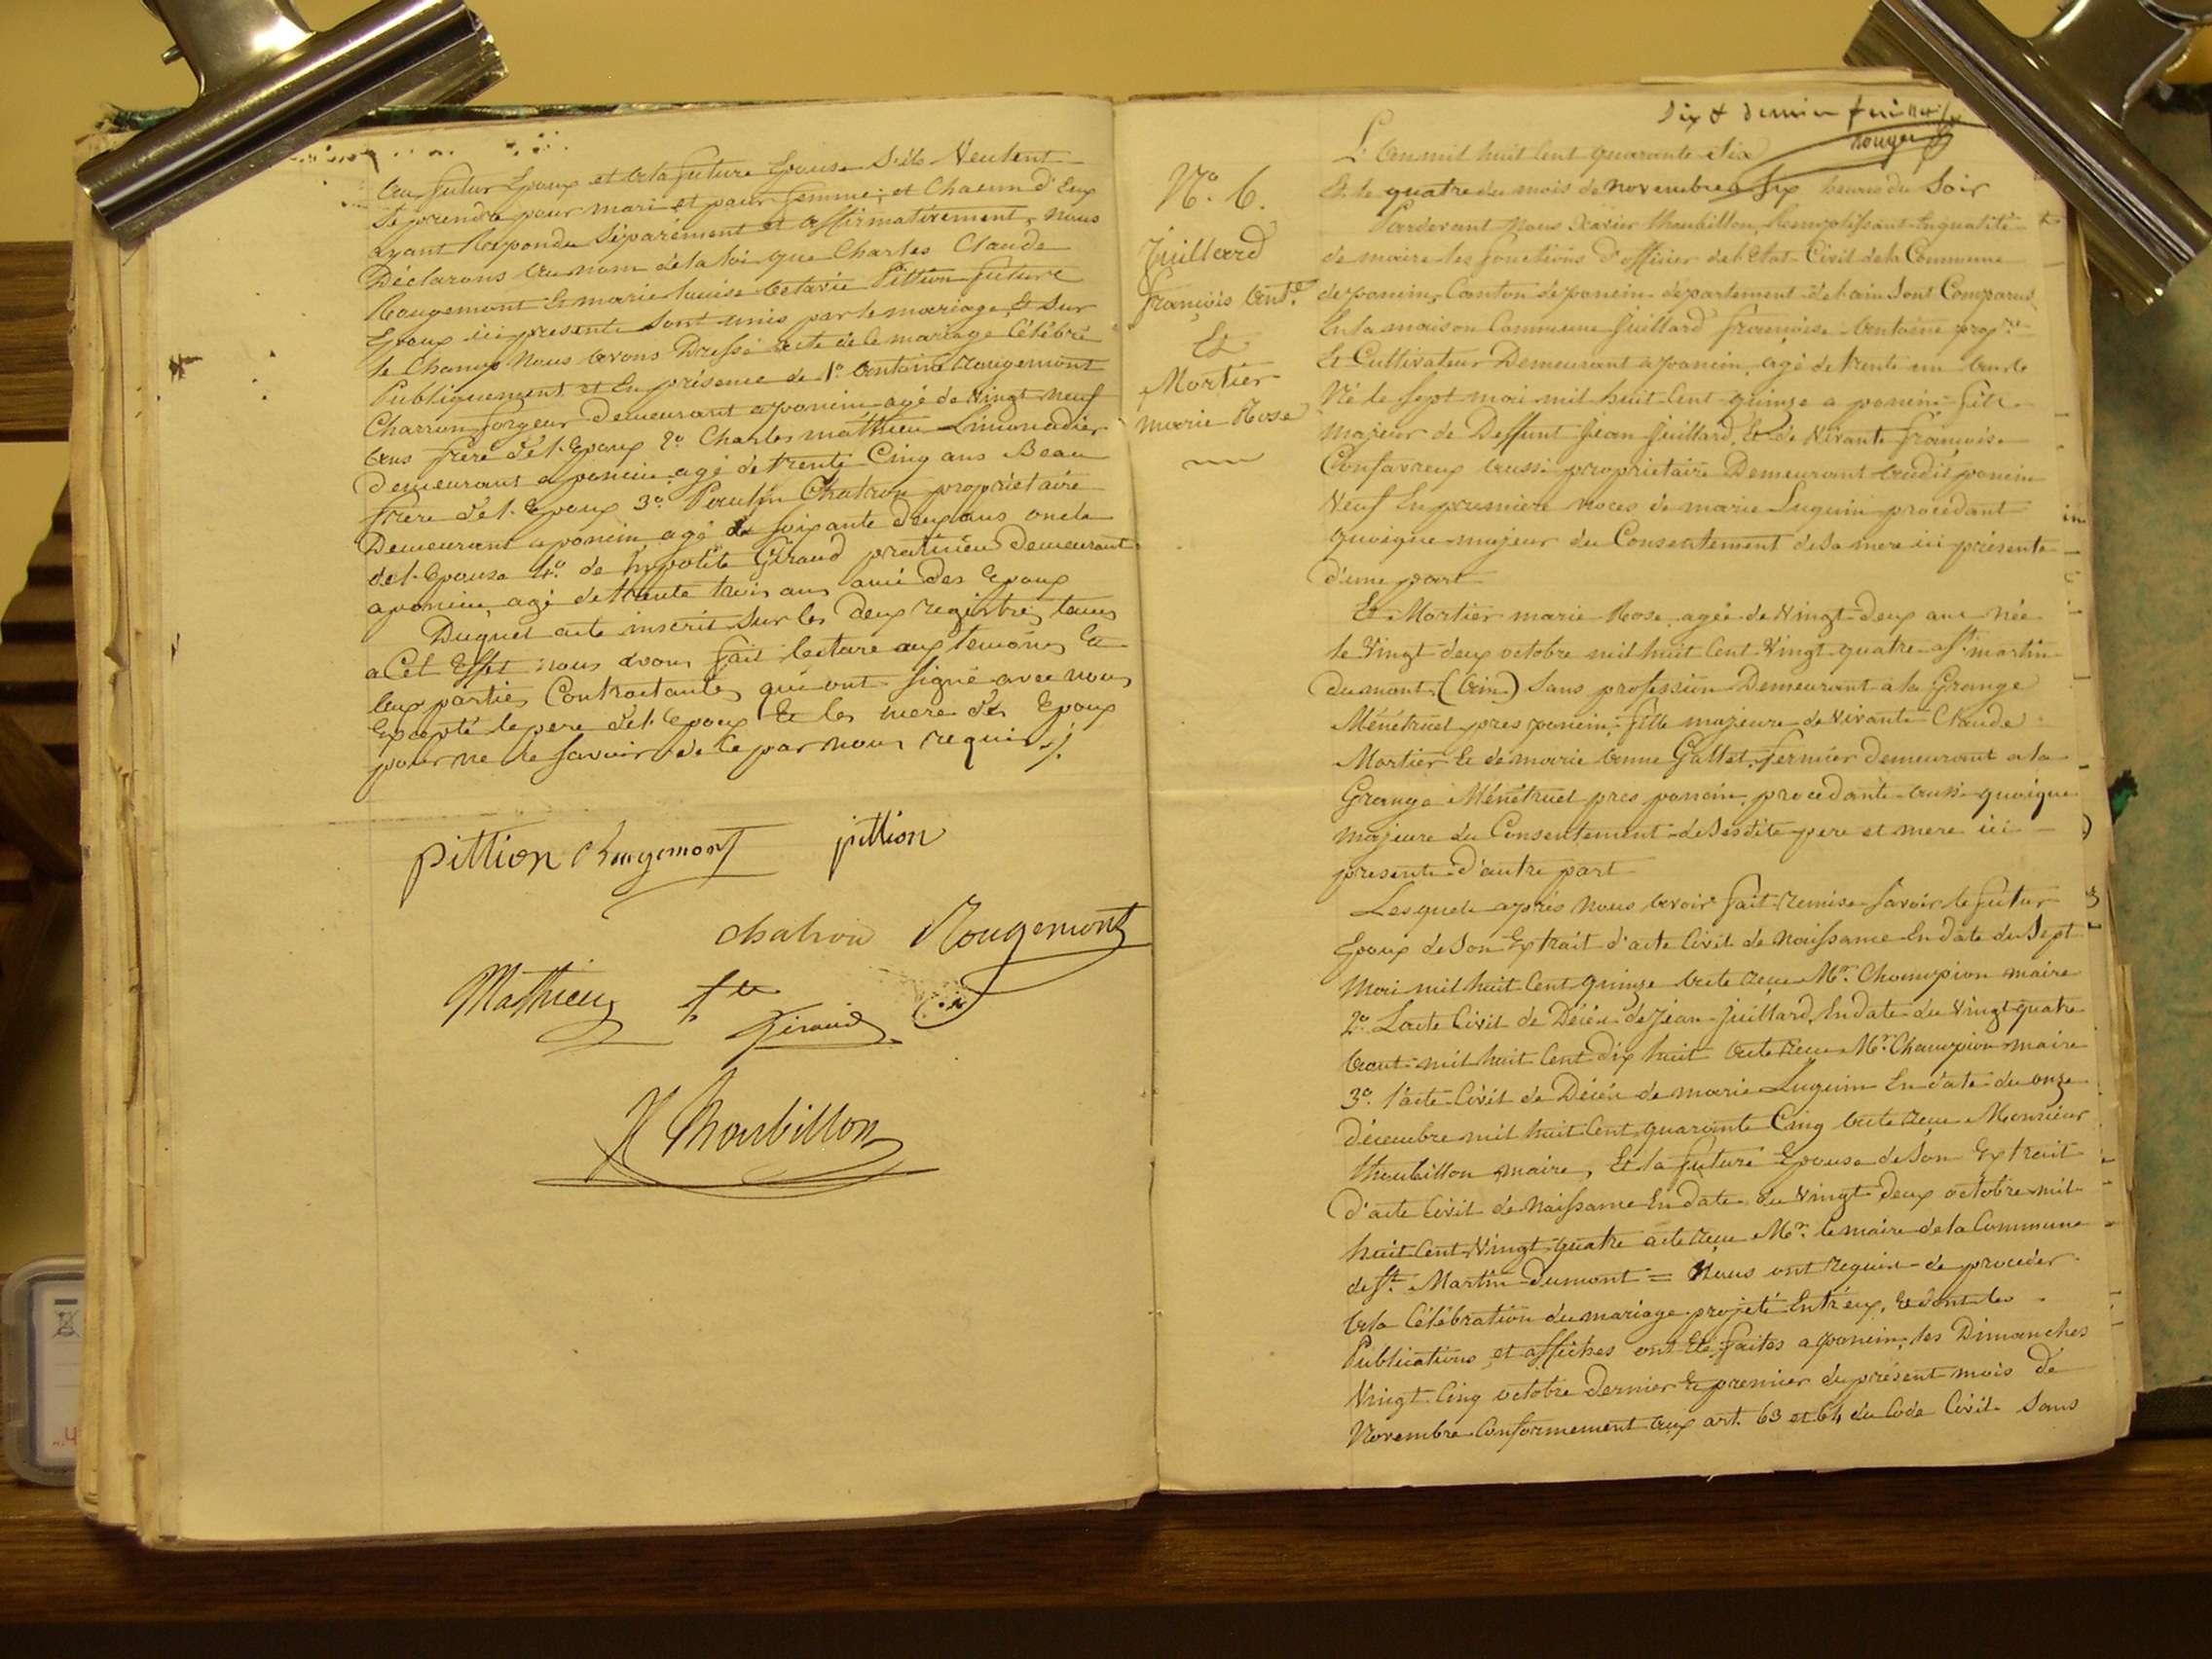 au futur Epoux et à la future Epouse s'ils veulent
se prendre pour mari et pour femme; et chacun d'Eux
ayant Repondu séparément et affirmativement, nous
Déclarons au nom de la loi que Charles Claude
Rougemont Et marie louise octavie Pittion future
Epoux ici présents sont unis par le mariage, Et sur
le Champ Nous avons Dressé acte de le mariage Célébré
Publiquement et En présence de 1º. antoine rougemont
Charron forgeur demeurant a poncin agé de vingt neuf
ans frere de l'Epoux 2º Charles mathieu Limonadier
demeurant a poncin agé de trente Cinq ans Beau
frere de l'Epoux 3º. Chatron propriétaire
Demeurant a poncin agé de soixante deux ans oncle
de l'Epouse 4º. de hypolite Giraud praticien demeurant
a poncin, agé de trente trois ans, ami des Epoux
Duquel acte inscrit sur les deux registres tenus
a Cet Effet nous avons fait lecture aux temoins Et
aux parties Contractantes qui ont signé avec nous
Excepté le pere de l'Epoux Et les mere des Epoux
pour ne le savoir de Ce par nous requis ./.
pittion Rougemont pittion
chatron Rougemont
Mathieu
Giraud
X Thoubillon
six & dernier feuillet
rouyer
Nº. 6.
Juillard
françois Ant.e
Et
Mortier
marie Rose
L'An mil huit Cent quarante Six
Et le quatre du mois de novembre a six heures du Soir
Pardevant Nous Xavier Thoubillon, Remplissant En qualité
de maire les fonctions d'officier de l'Etat Civil de la Commune
de poncin, Canton de poncin departement de l'ain sont Comparus
En la maison Commune Juillard françois Antoine prop.re
Et Cultivateur Demeurant a poncin, agé de trente un ans
Né le sept mai mil huit Cent quinze a poncin fils
majeur de Deffunt Jean Juillard, Et de vivante françoise
Confavreux aussi propriétaire Demeurant audit poncin
Veuf En premiere noces de marie Luguin procédant
quoique majeur du Consentement de sa mere ici présente
d'une part
Et Mortier marie Rose, agée de vingt deux ans née
le vingt deux octobre mil huit Cent vingt quatre a St. martin
dumont, (Ain) sans profession Demeurant à la Grange
Ménétruel pres poncin, fille majeure de vivants Claude
Mortier Et de marie anne Gallet, fermier demeurant a la
Grange Ménétruel pres poncin, procédante aussi quoique
majeure du Consentement de ses dits pere et mere ici
presents d'autre part
Lesquels après nous avoir fait remise savoir le futur
Epoux de son Extrait d'acte Civil de Naissance En date du sept
Mai mil huit Cent quinze acte reçu Mr. Champion maire
2º. L'acte Civil de Décès de Jean Juillard, En date du vingt quatre
aout mil huit Cent dix huit acte reçu Mr. Champion maire
3º. l'acte Civil de Décès de marie Luguin En date du onze
décembre mil huit Cent quarante Cinq acte reçu Monsieur
Thoubillon maire, Et la future Epouse de son Extrait
d'acte Civil de Naissance En date du vingt deux octobre mil
huit Cent vingt quatre acte reçu Mr. le maire de la Commune
de St. Martin Dumont = Nous ont requis de proceder
à la Célébration du mariage projeté Entr'eux, Et dont les
Publications et affiches ont Eté faites a poncin, les Dimanches
Vingt Cinq octobre dernier Et premier du présent mois de
Novembre Conformement aux art. 63 et 64 du Code Civil sans